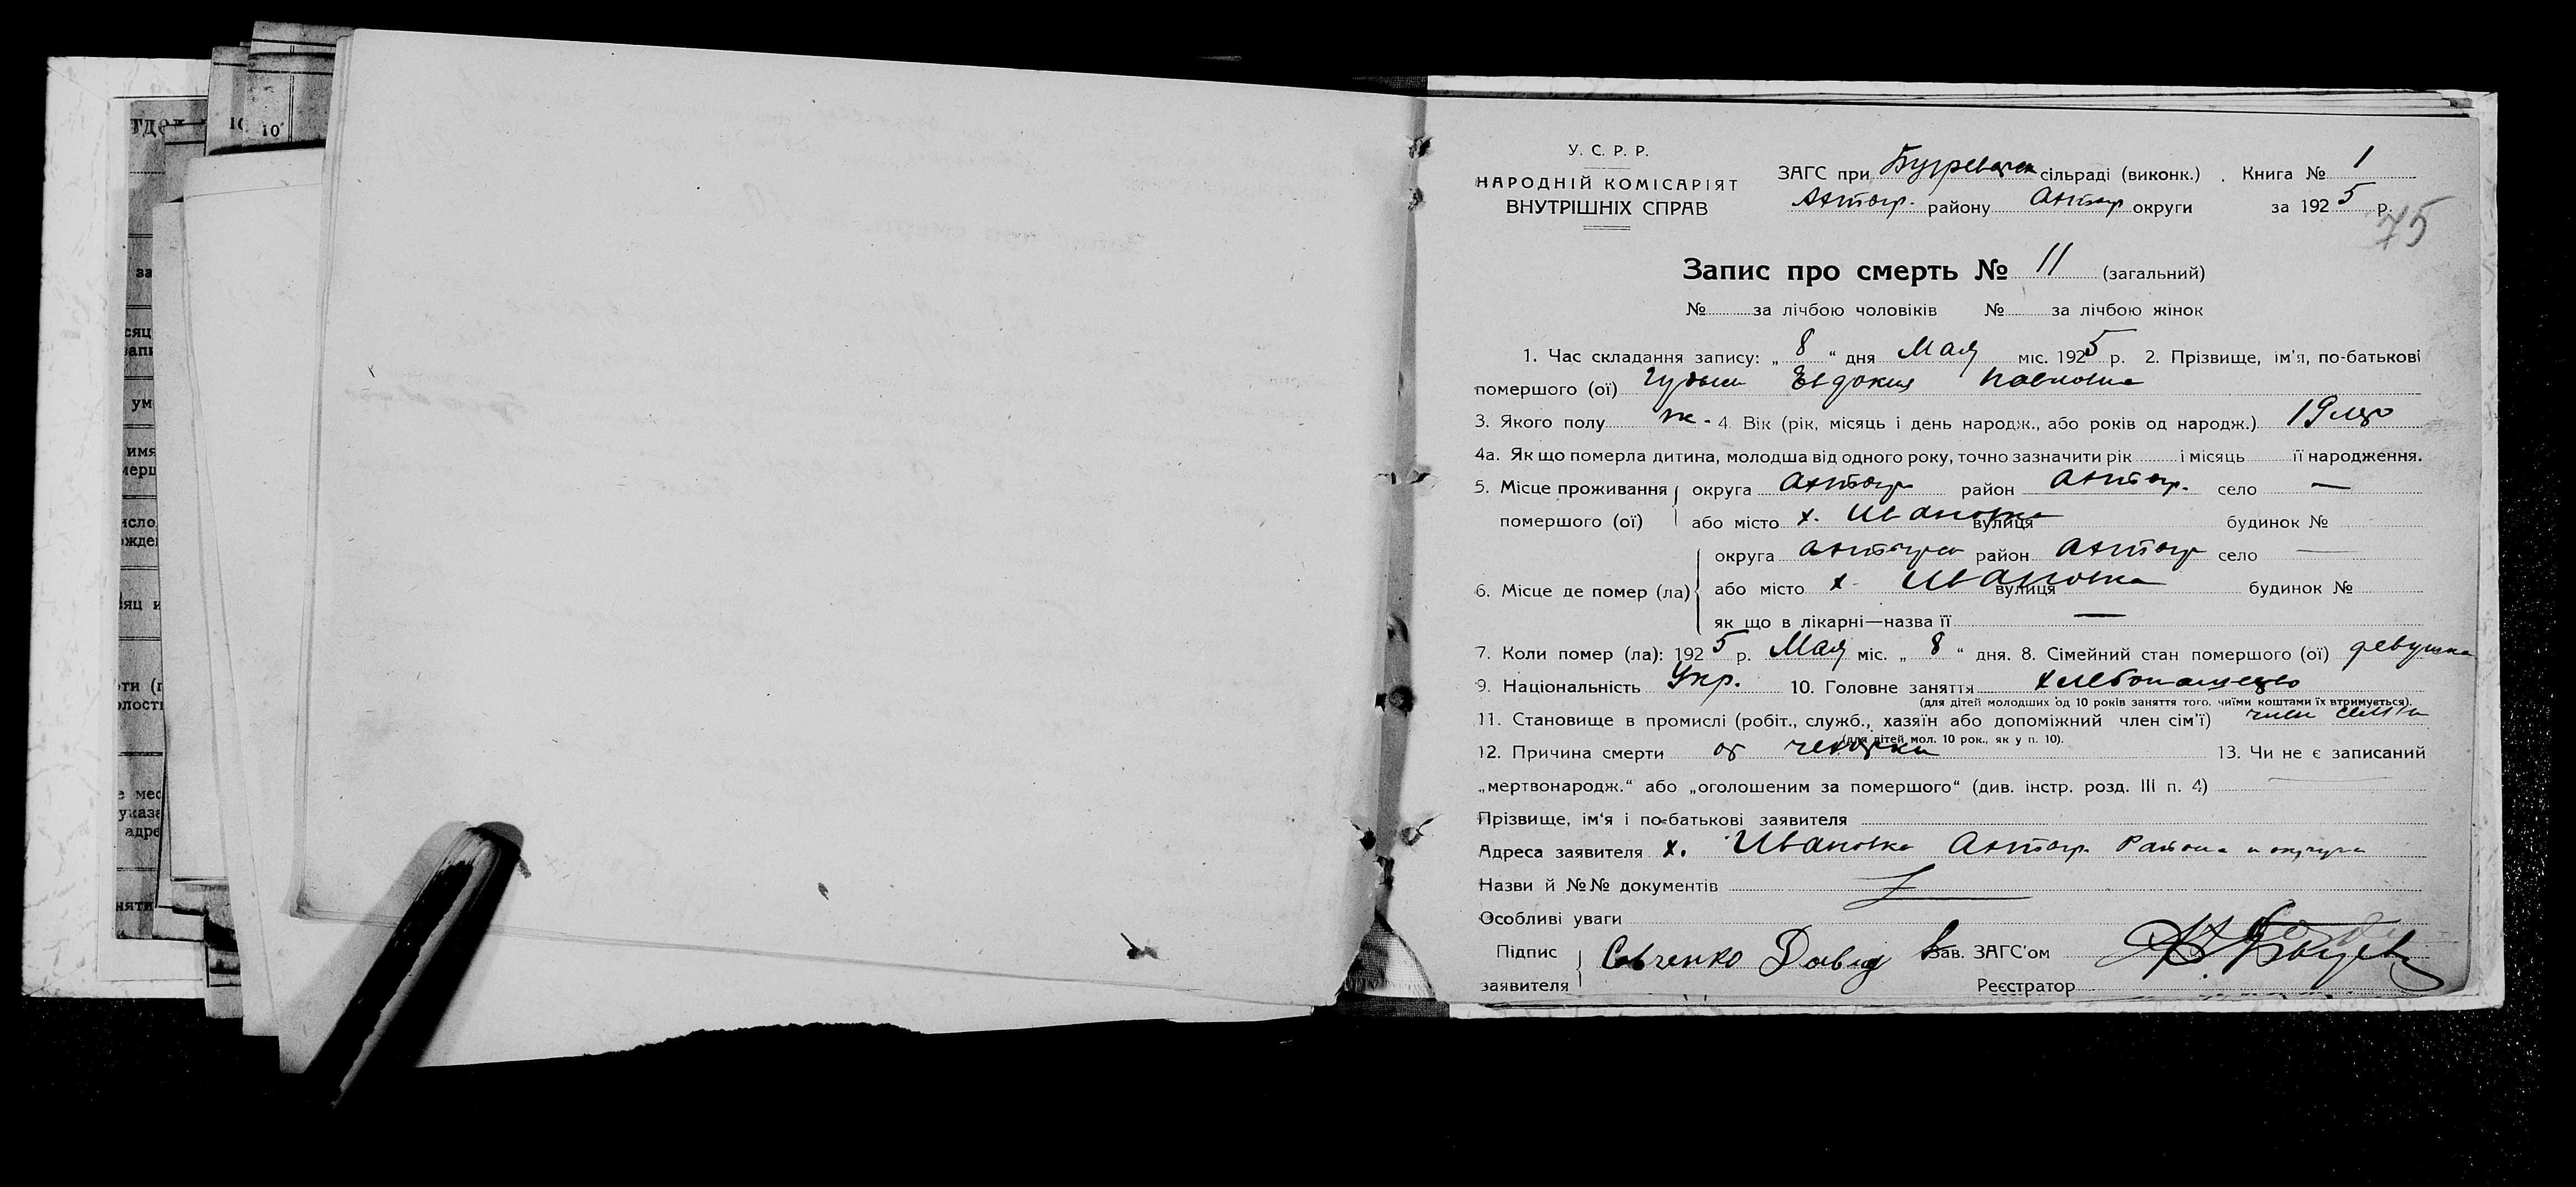 тдел
10
10
за
сяц
запи
ум
имя
мерш
исло
ожден
яц и
ти (п
олост
е мес
указа
адре
няти
У. С. Р. Р.
НАРОДНІЙ КОМІСАРІЯТ
ВНУТРІШНІХ СПРАВ
ЗАГС при сільраді (виконк.). Книга № 1
району округи за 1925 р.
75
Запис про смерть № 11 (загальний)
№ за лічбою чоловіків № за лічбою жінок
1. Час складання запису: „ 8 “ дня Мая міс. 1925 р. 2. Прізвище, ім'я, по-батькові
помершого (ої) Евдокия Павловна
3. Якого полу ж. 4. Вік (рік, місяць і день народж., або років од народж.) 19
4а. Як що померла дитина, молодша від одного року, точно зазначити рік і місяць її народження.
5. Місце проживання округа район село —
помершого (ої) або місто х. Ивановка вулиця будинок №
округа район село —
6. Місце де помер (ла) або місто х. Ивановка вулиця будинок №
як що в лікарні—назва її —
7. Коли помер (ла): 1925 р. Мая міс. „ 8 “ дня. 8. Сімейний стан помершого (ої) девушка
9. Національність Укр. 10. Головне заняття хлебопашество
(для дітей молодших од 10 років заняття того, чиїми коштами їх втримується).
11. Становище в промислі (робіт., служб., хазяїн або допоміжний член сім'ї) член семьи
(для дітей мол. 10 рок., як у п. 10).
12. Причина смерти от чехотки 13. Чи не є записаний
„мертвонародж.“ або „оголошеним за помершого“ (див. інстр. розд. III п. 4)
Прізвище, ім'я і по-батькові заявителя
Адреса заявителя х. Ивановка Района и округа
Назви й №№ документів
Особливі уваги
Підпис Савченко Давид Зав. ЗАГС'ом
заявителя Реєстратор